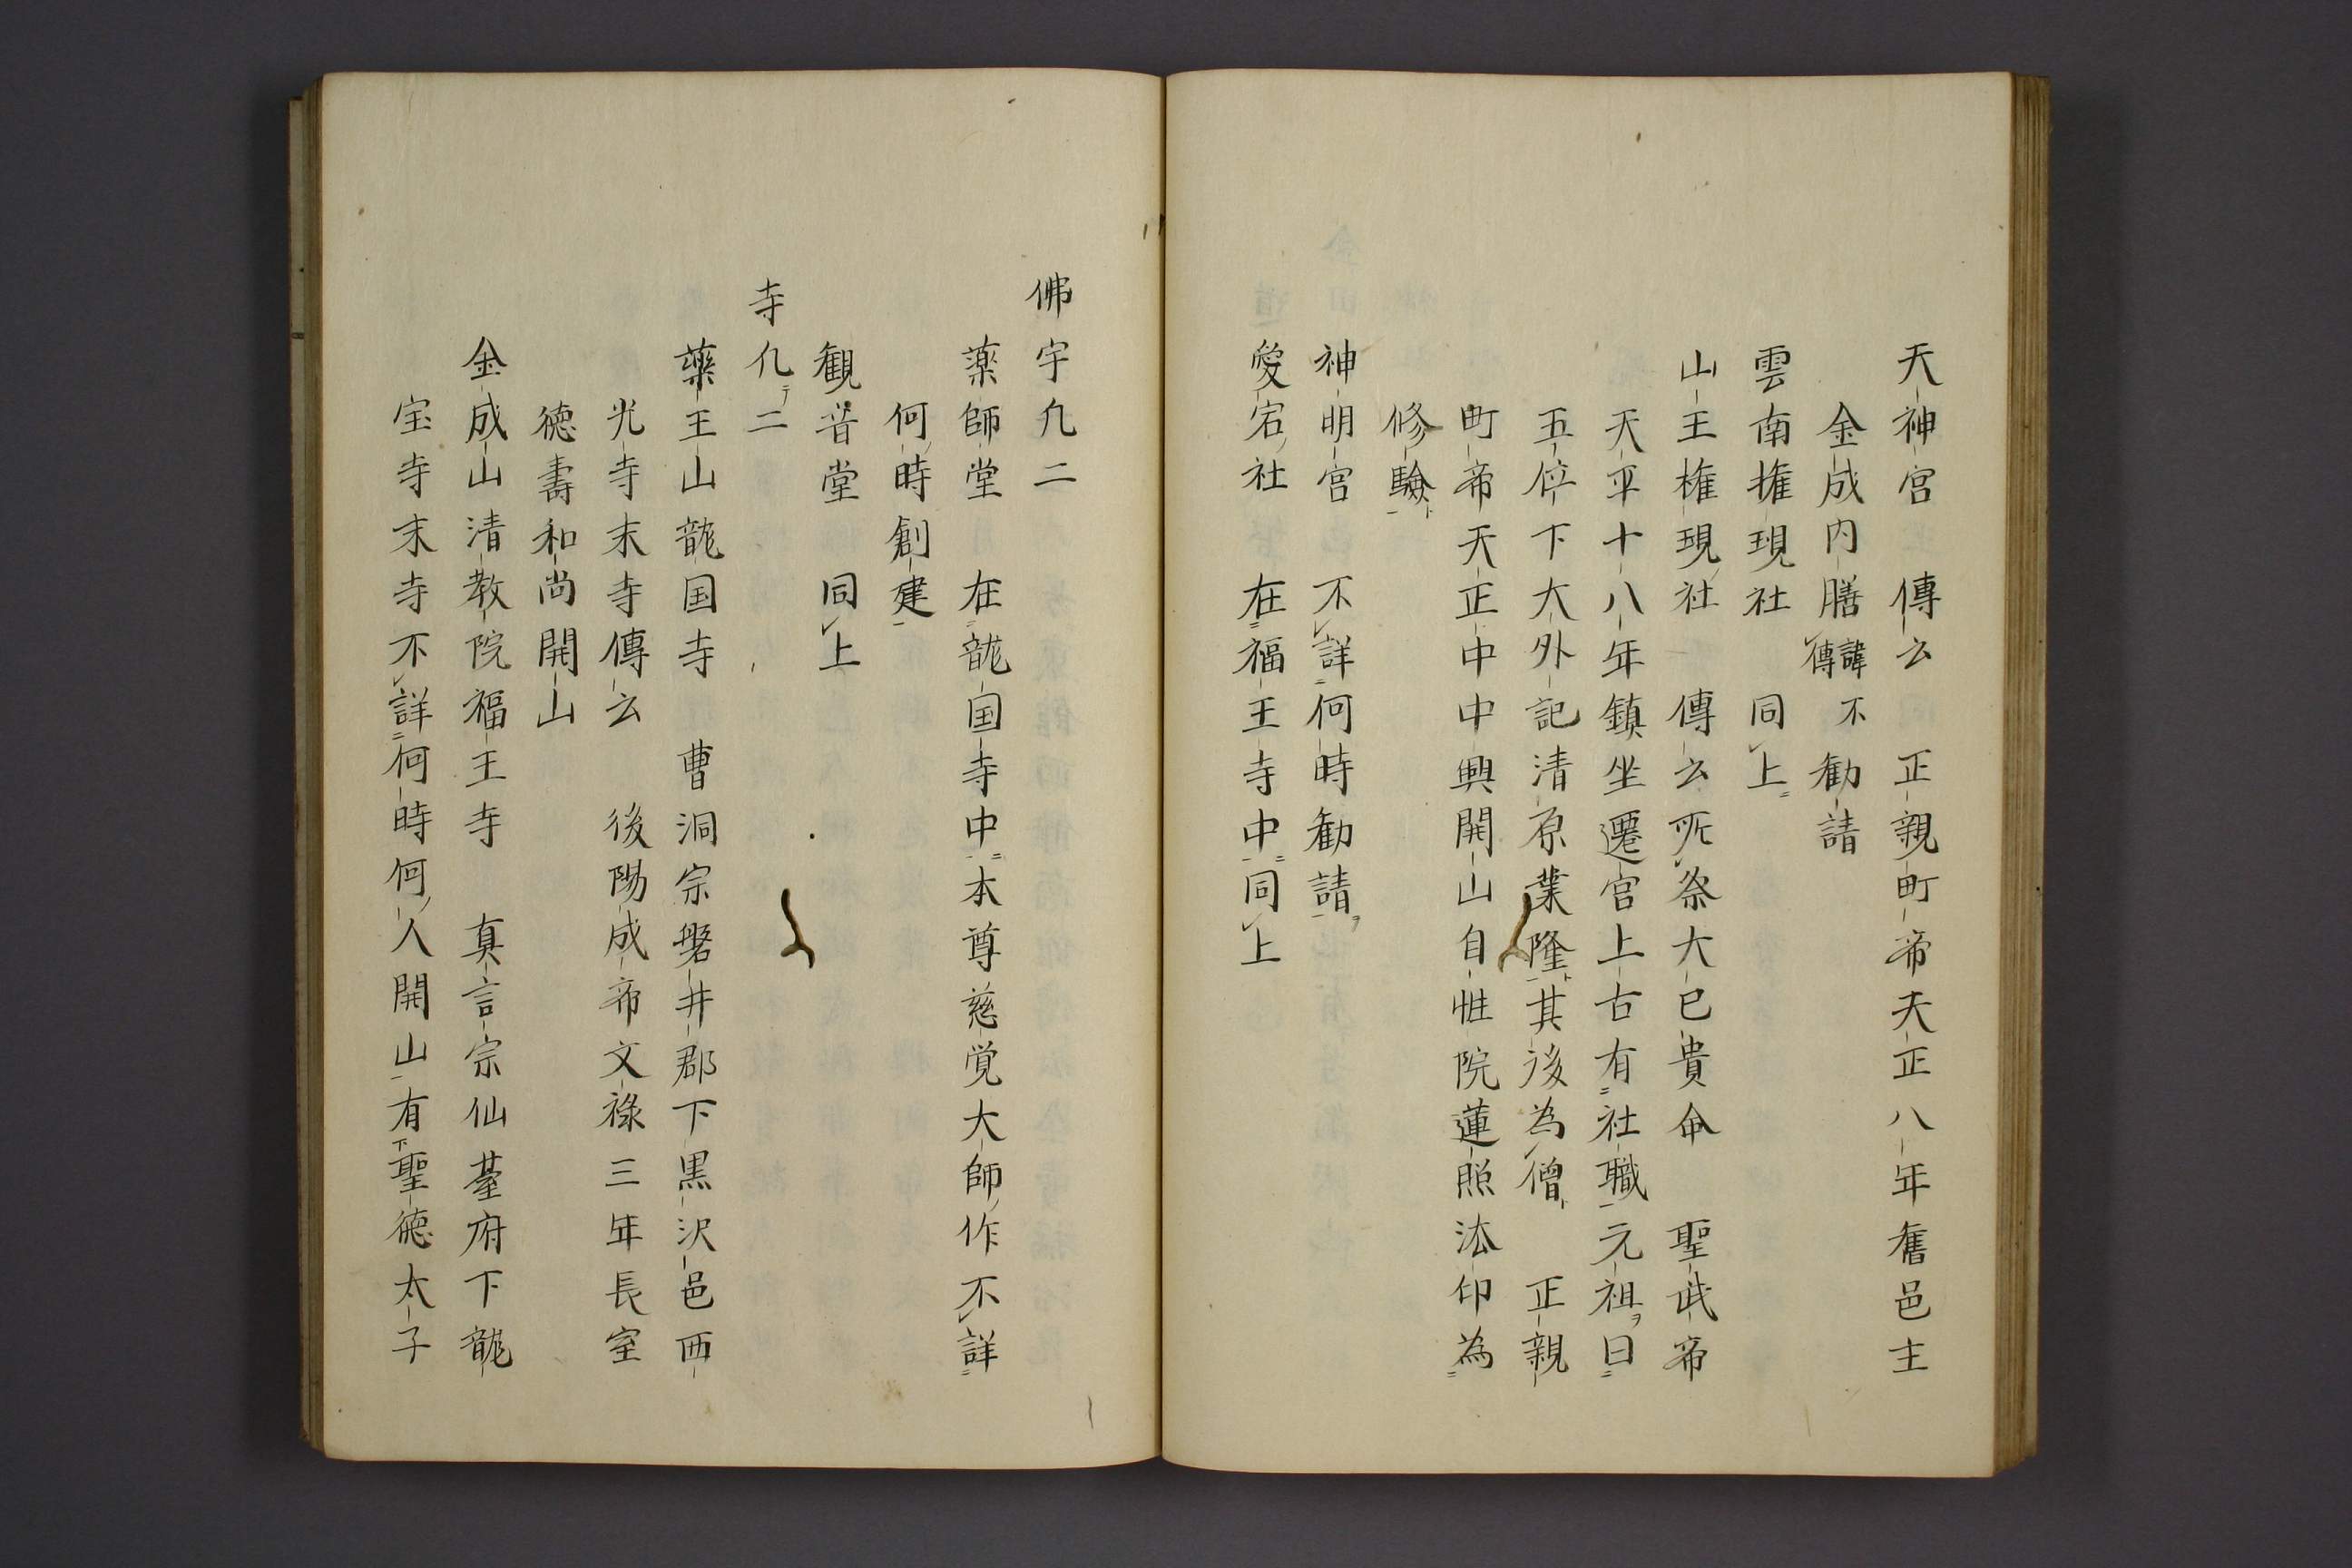 天神宮　傳云　正親町帝天正八年舊邑主
金成内膳諱不傳勧請
雲南権現社　同上
山王権現社　傳云所祭大已貴命　聖武帝
天平十八年鎮坐遷宮上古有社職元祖曰
五位下大外記清原業隆其後為僧　正親
町帝天正中中興開山自性院蓮照法印為
修驗
神明宮　不詳何時勧請
愛宕社　在福王寺中同上
佛宇凢二
薬師堂　在龍国寺中本尊慈覚大師作不詳
何時創建
観音堂　同上
寺凢二
藥王山龍国寺　曹洞宗磐井郡下黒沢邑西
光寺末寺傳云　後陽成帝文禄三年長室
徳壽和尚開山
金成山清教院福王寺　真言宗仙臺府下龍
宝寺末寺不詳何時何人開山有聖徳太子